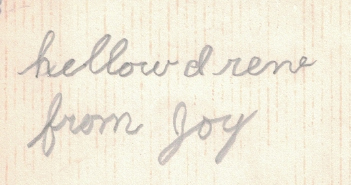 hellow d rene
from Joy